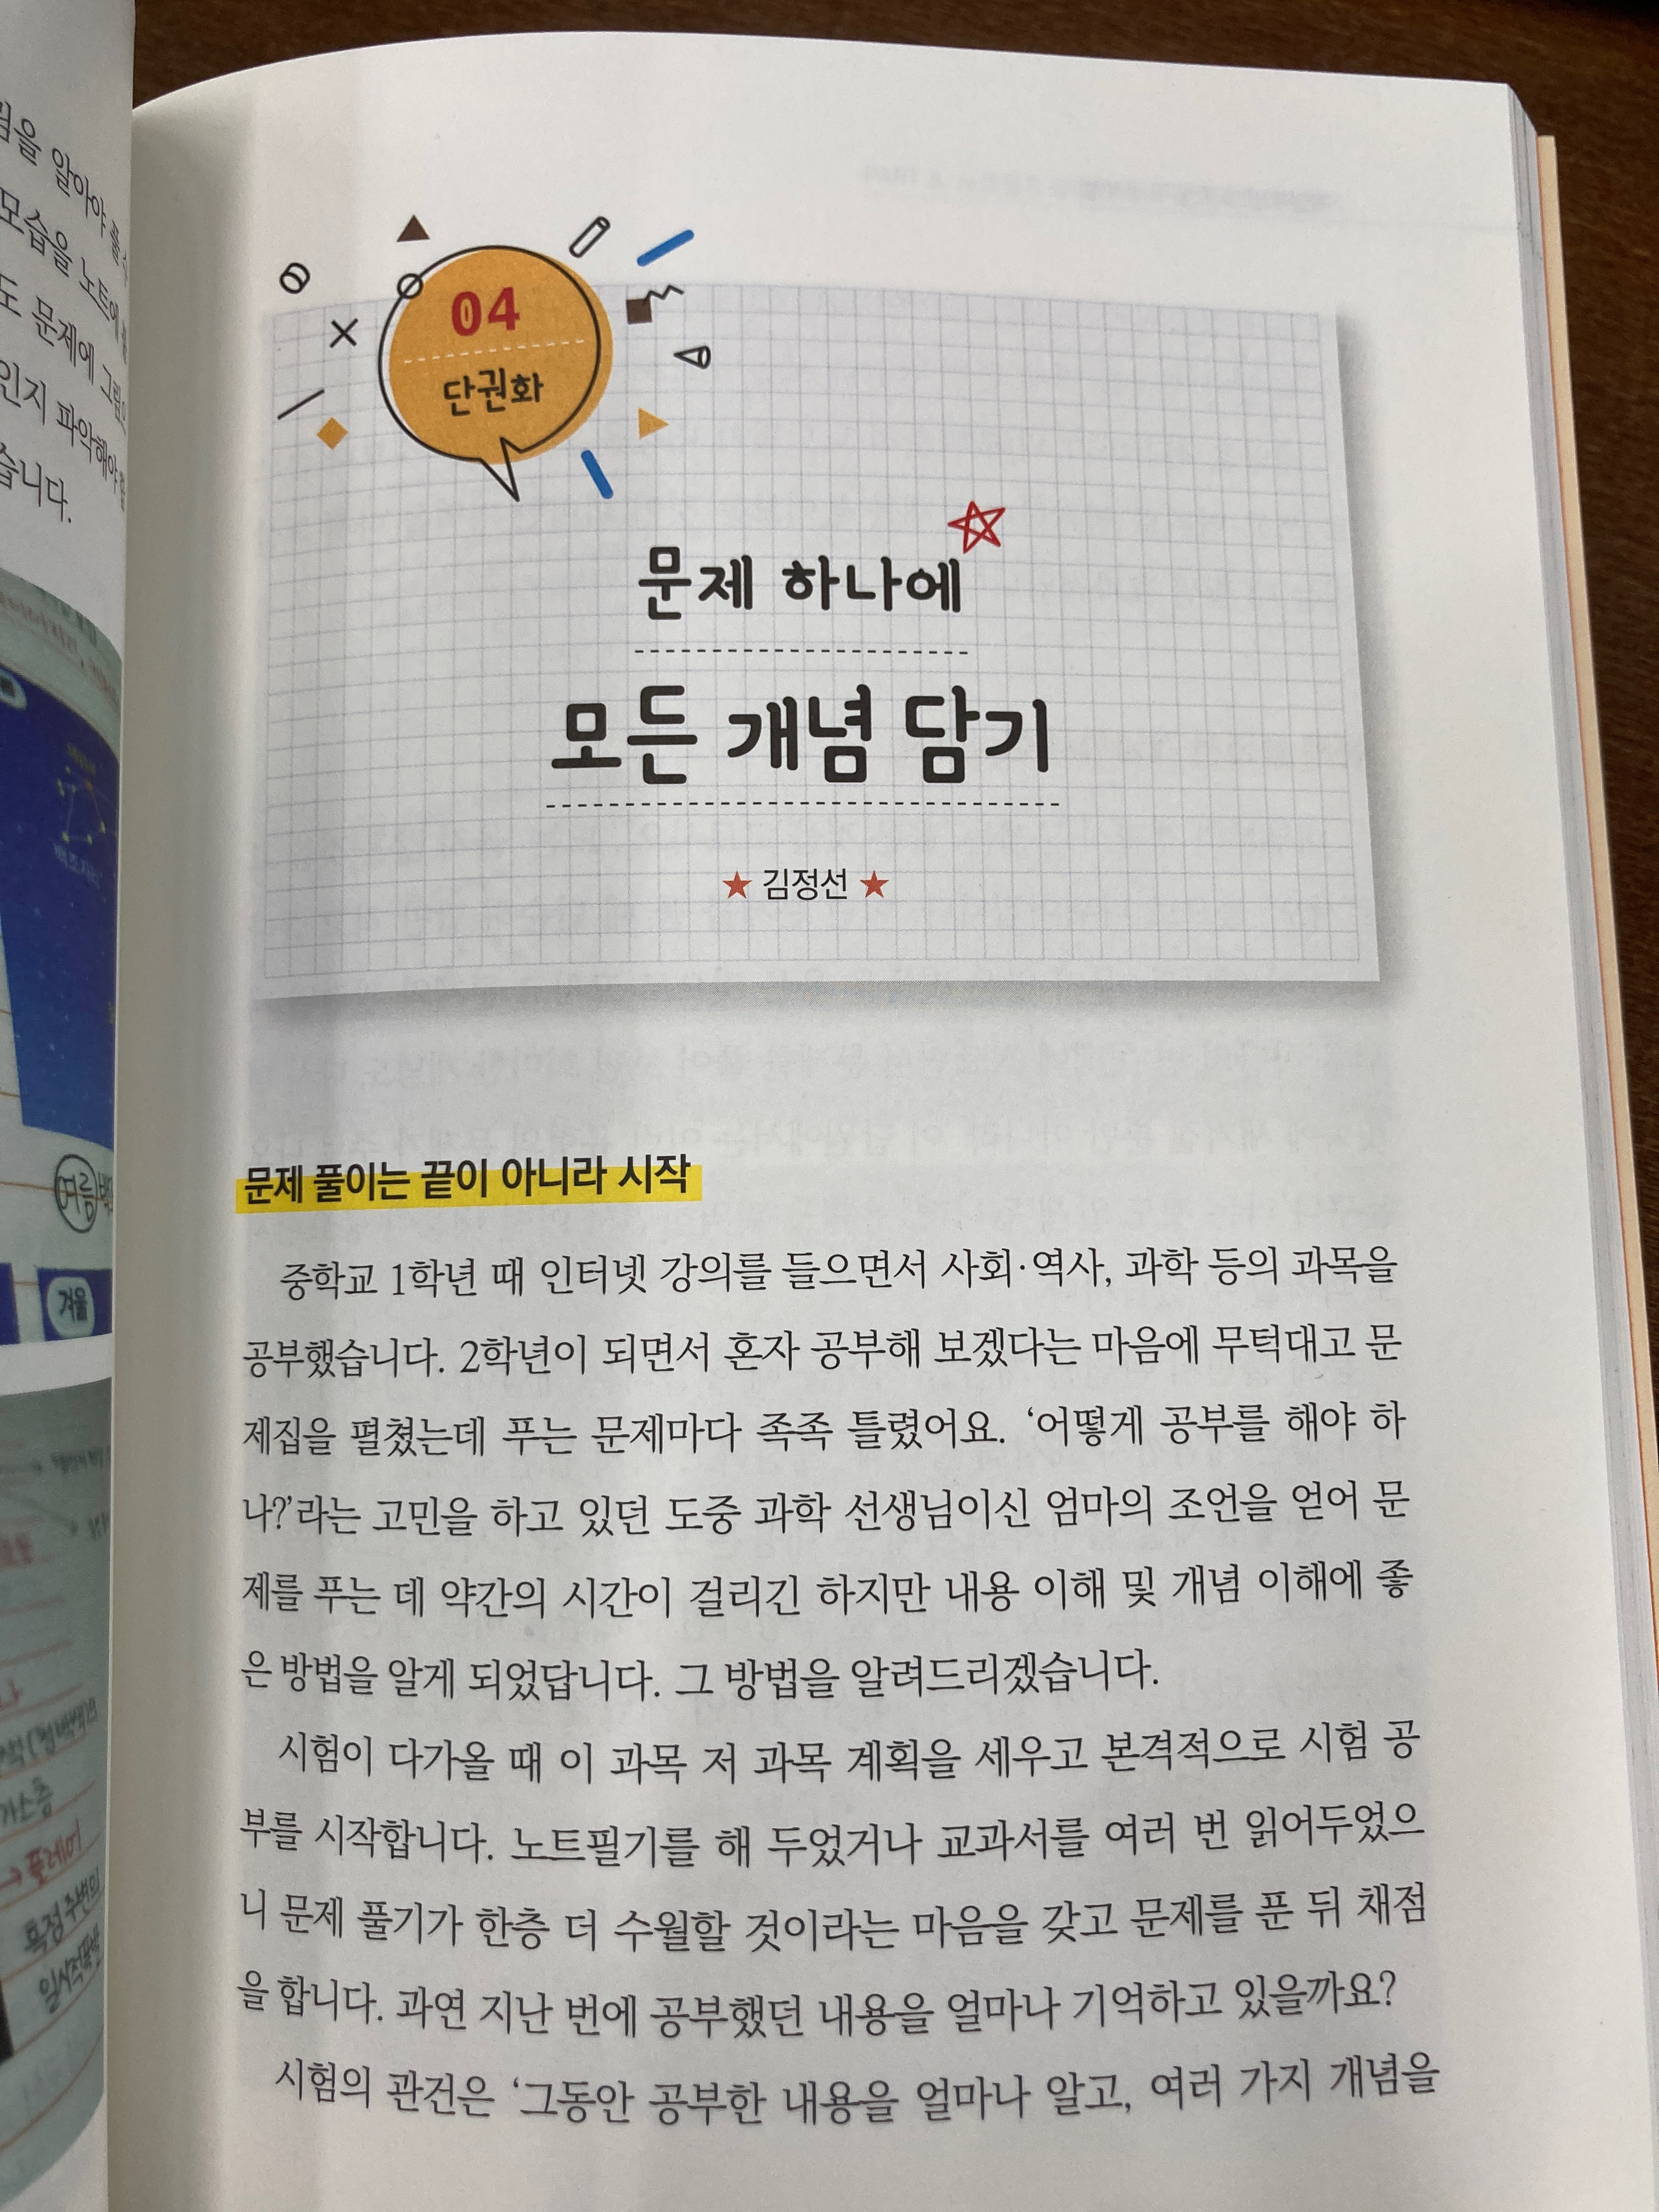 림을 알아야 풀
모습을 노트에
도 문제에 그림
인지 파악해야
습니다.
백조자리
여름
겨울
가소층
→ 플레어
특정 주변의
04
단권화
문제 하나에
모든 개념 담기
★ 김정선 ★
문제 풀이는 끝이 아니라 시작
중학교 1학년 때 인터넷 강의를 들으면서 사회·역사, 과학 등의 과목을
공부했습니다. 2학년이 되면서 혼자 공부해 보겠다는 마음에 무턱대고 문
제집을 펼쳤는데 푸는 문제마다 족족 틀렸어요. ‘어떻게 공부를 해야 하
나?’라는 고민을 하고 있던 도중 과학 선생님이신 엄마의 조언을 얻어 문
제를 푸는 데 약간의 시간이 걸리긴 하지만 내용 이해 및 개념 이해에 좋
은 방법을 알게 되었답니다. 그 방법을 알려드리겠습니다.
시험이 다가올 때 이 과목 저 과목 계획을 세우고 본격적으로 시험 공
부를 시작합니다. 노트필기를 해 두었거나 교과서를 여러 번 읽어두었으
니 문제 풀기가 한층 더 수월할 것이라는 마음을 갖고 문제를 푼 뒤 채점
을 합니다. 과연 지난 번에 공부했던 내용을 얼마나 기억하고 있을까요?
시험의 관건은 ‘그동안 공부한 내용을 얼마나 알고, 여러 가지 개념을